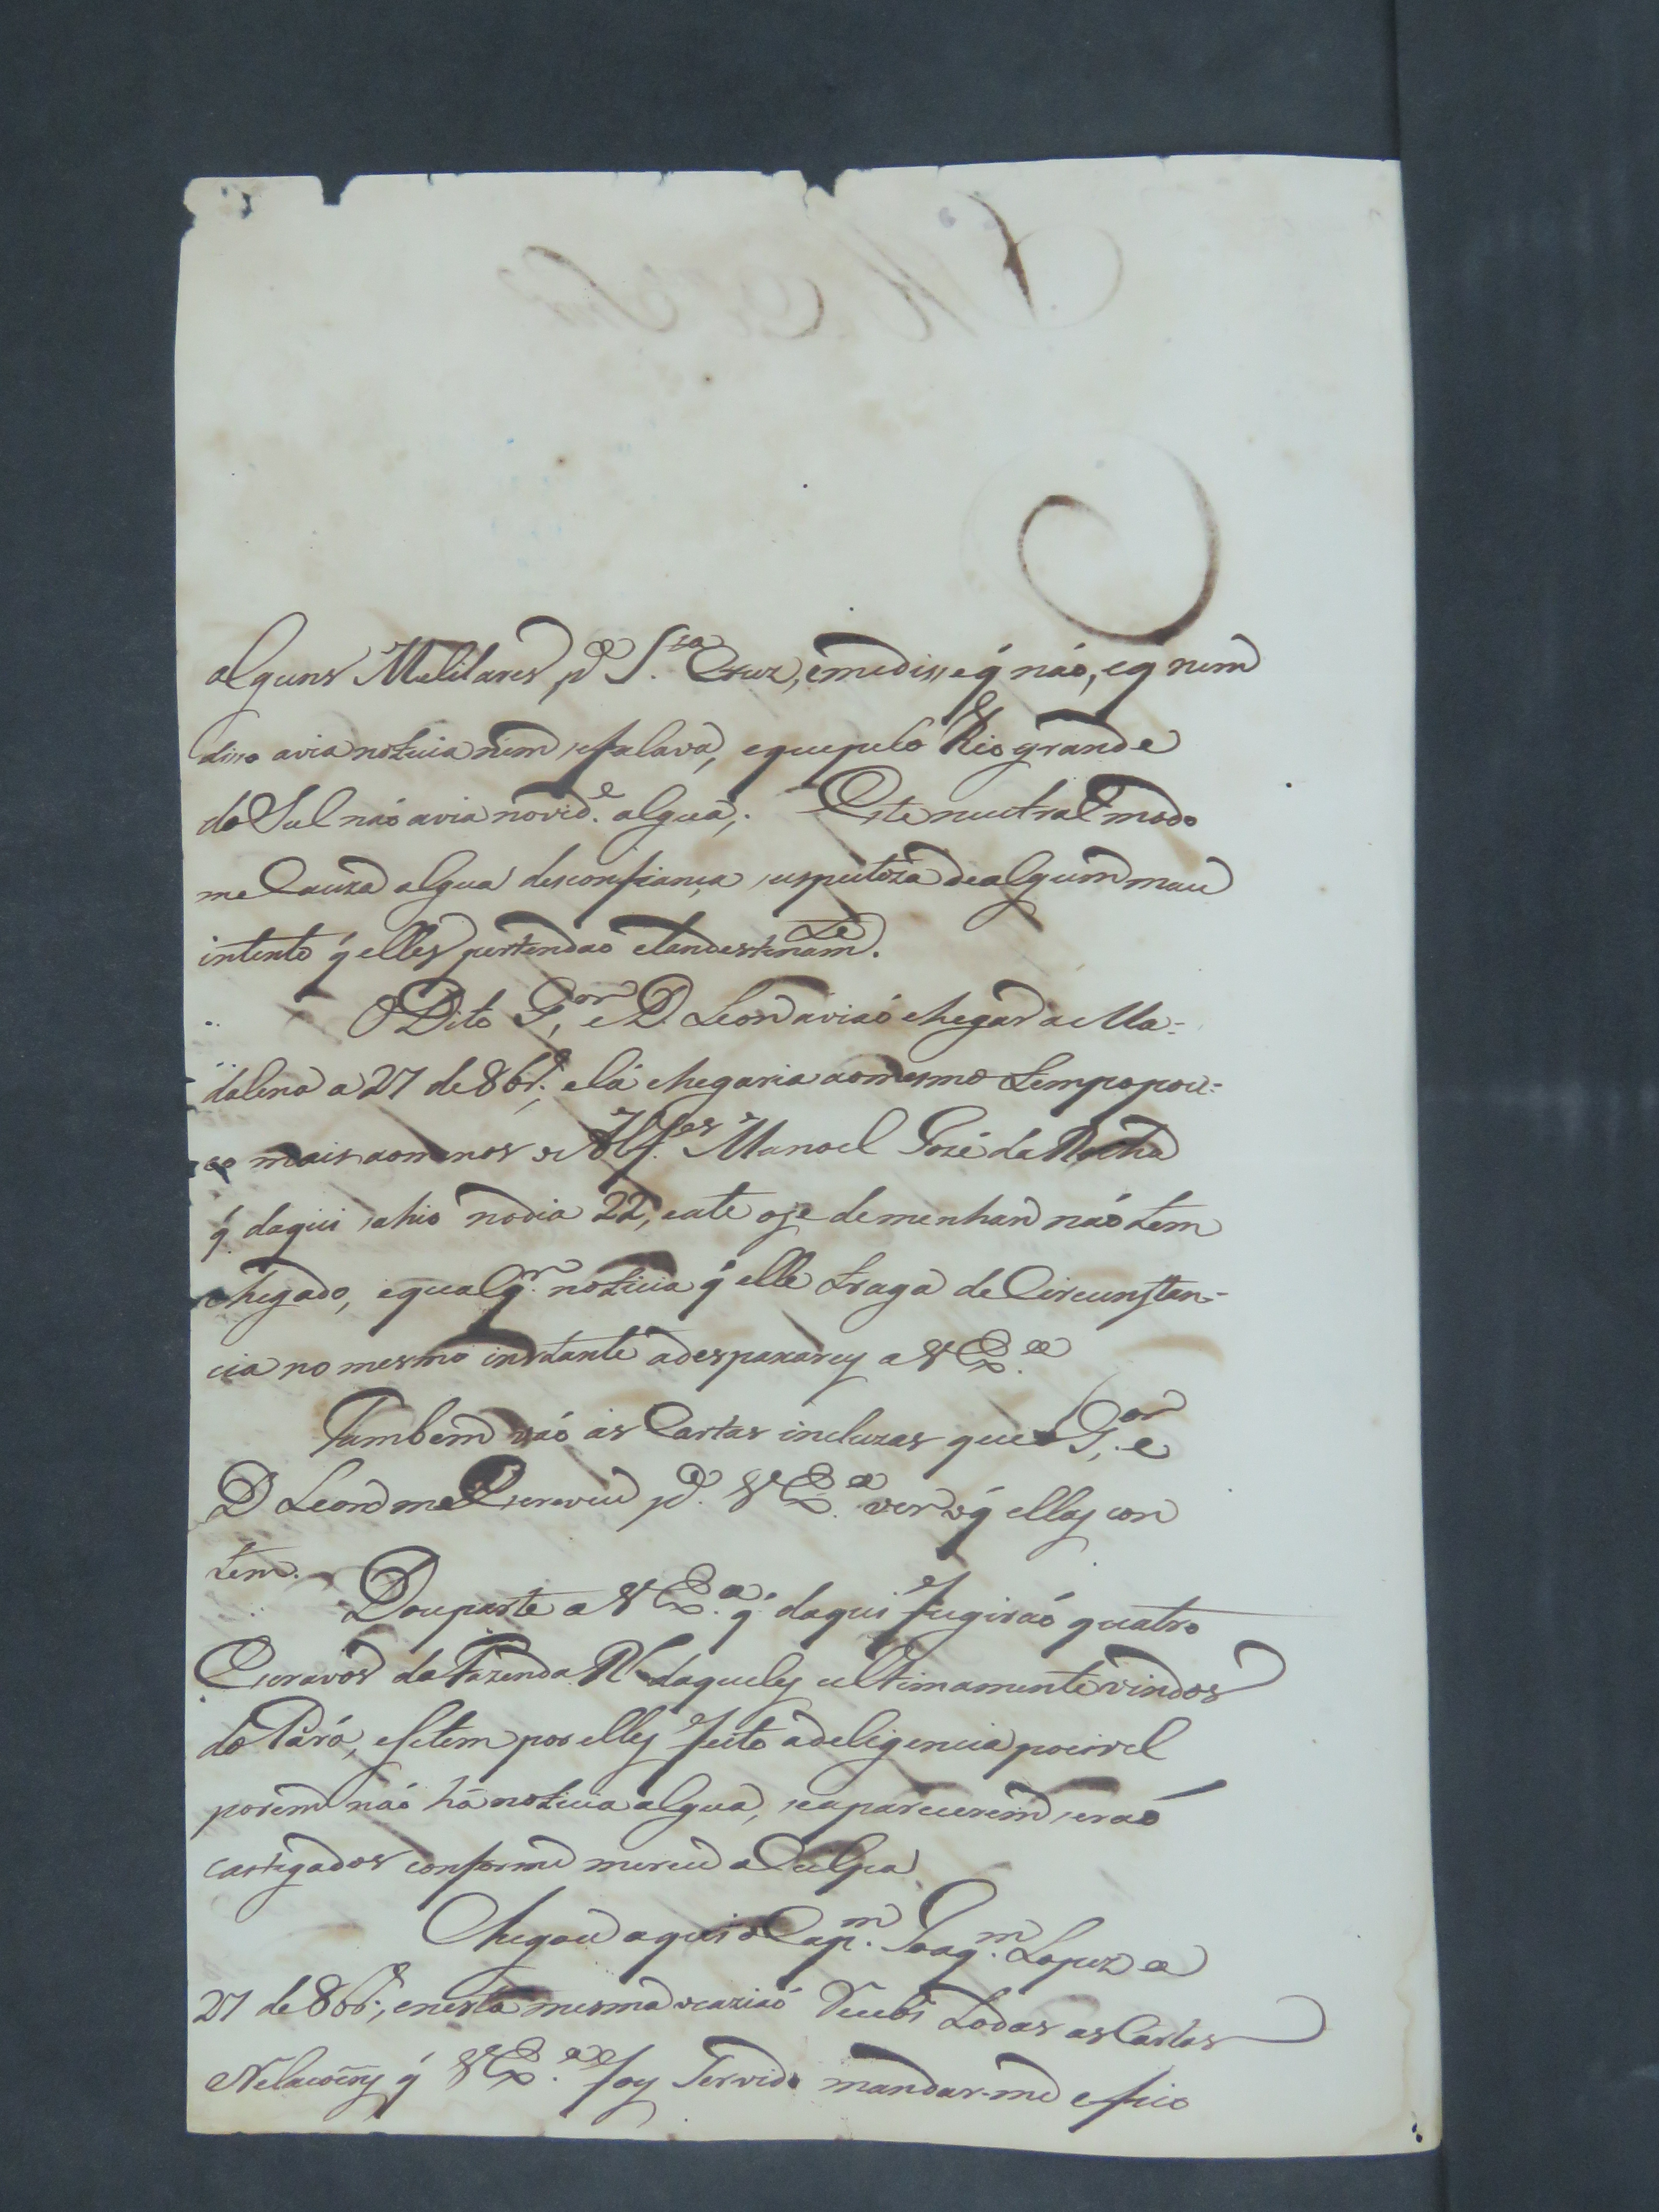 alguns Melitares pª S.ta Cruz, emedisse q̃ náo, eq̃ nem
disso avia noticia nem sefalava, equepelo Rio grande
do Sul náo avia novid.e algua; Este neutral modo
me Cauza algua desconfiança suspeitoza dealgum mau
intento q̃ elles pertendao clandestinam.te
O Dito G.or, e D. Leon aviaó chegar a Ma=
dalena a 27 de 8br.º, elá chegaria aomesmo tempo pou=
co mais aomenos o Alf.es Manoel Jozé da Rocha
q̃ daqui sahio nodia 22, eate oje demenhan náo tem
chegado, equalq.r noticia q̃ elle traga de Circunstan=
cia no mesmo instante adespaxarey a V Ex.ª
Tambem váo as Cartas incluzas que o G.or e
D Leon me Escreveu pª. V Ex.ª ver oq̃ ellas con
tem.
Dou parte a V Ex.ª q̃ daqui fugiraó quatro
Escravos da Fazenda R.l daqueles ultimamente vindos
do Pará, esetem por elles feito adeligencia pocivel
porem náo há noticia algua, seaparecerem seraó
castigados conforme merece a Culpa.
Chegou aqui o Cap.m Joaq.m Lopez a
27 de 8br.º, enesta mesma ocaziaó Recebi todas as Cartas
eRelacoens q̃ V Ex.ª foy Servido mandar-me efico